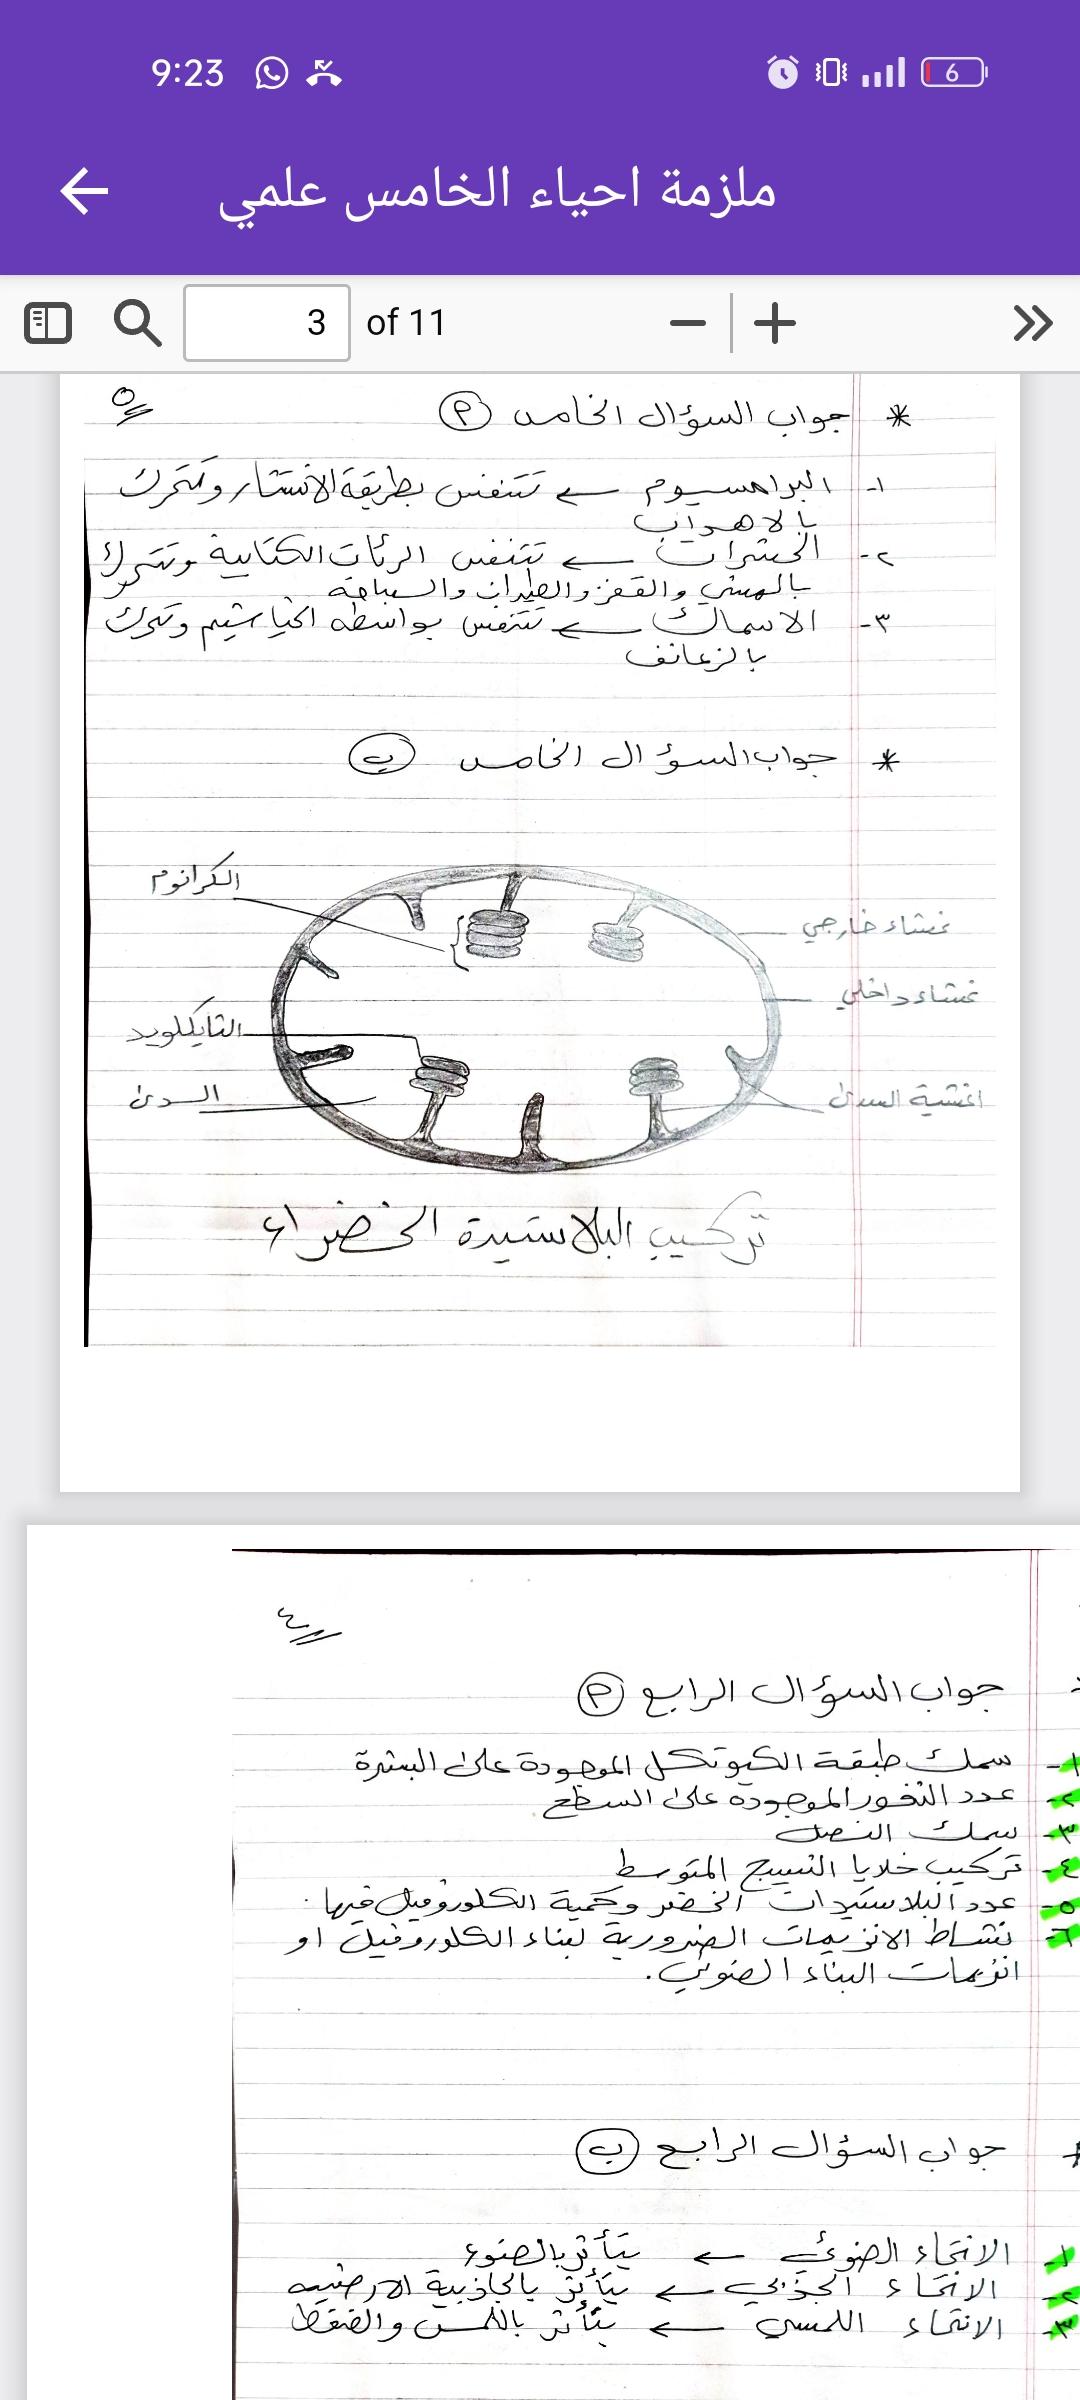 9:23
6
ملزمة احياء الخامس علمي
3 of 11
٥
* جواب السؤال الخامس (أ)
١- البراميسيوم ← تتنفس بطريقة الانتشار وتتحرك
بالاهداب
٢- الحشرات ← تتنفس الرئات الكتابية وتتحرك
بالمشي والقفز والطيران والسباحة
٣- الاسماك ← تتنفس بواسطه الخياشيم وتتحرك
بالزعانف
* جواب السؤال الخامس (ب)
الكرانوم
غشاء خارجي
غشاء داخلي
الثايكلويد
السدى
اغشية السدى
تركيب البلاستيدة الخضراء
٤
جواب السؤال الرابع (أ)
١- سمك طبقة الكيوتكل الموجودة على البشرة
٢- عدد الثغور الموجودة على السطح
٣- سمك النصل
٤- تركيب خلايا النسيج المتوسط
٥- عدد البلاستيدات الخضر وكمية الكلوروفيل فيها
٦- نشاط الانزيمات الضرورية لبناء الكلوروفيل او
انزيمات البناء الضوئي.
* جواب السؤال الرابع (ب)
١- الانتحاء الضوئي ← يتأثر بالضوء
٢- الانتحاء الجذبي ← يتأثر بالجاذبية الارضيه
٣- الانتحاء اللمسي ← يتأثر باللمس والضغط